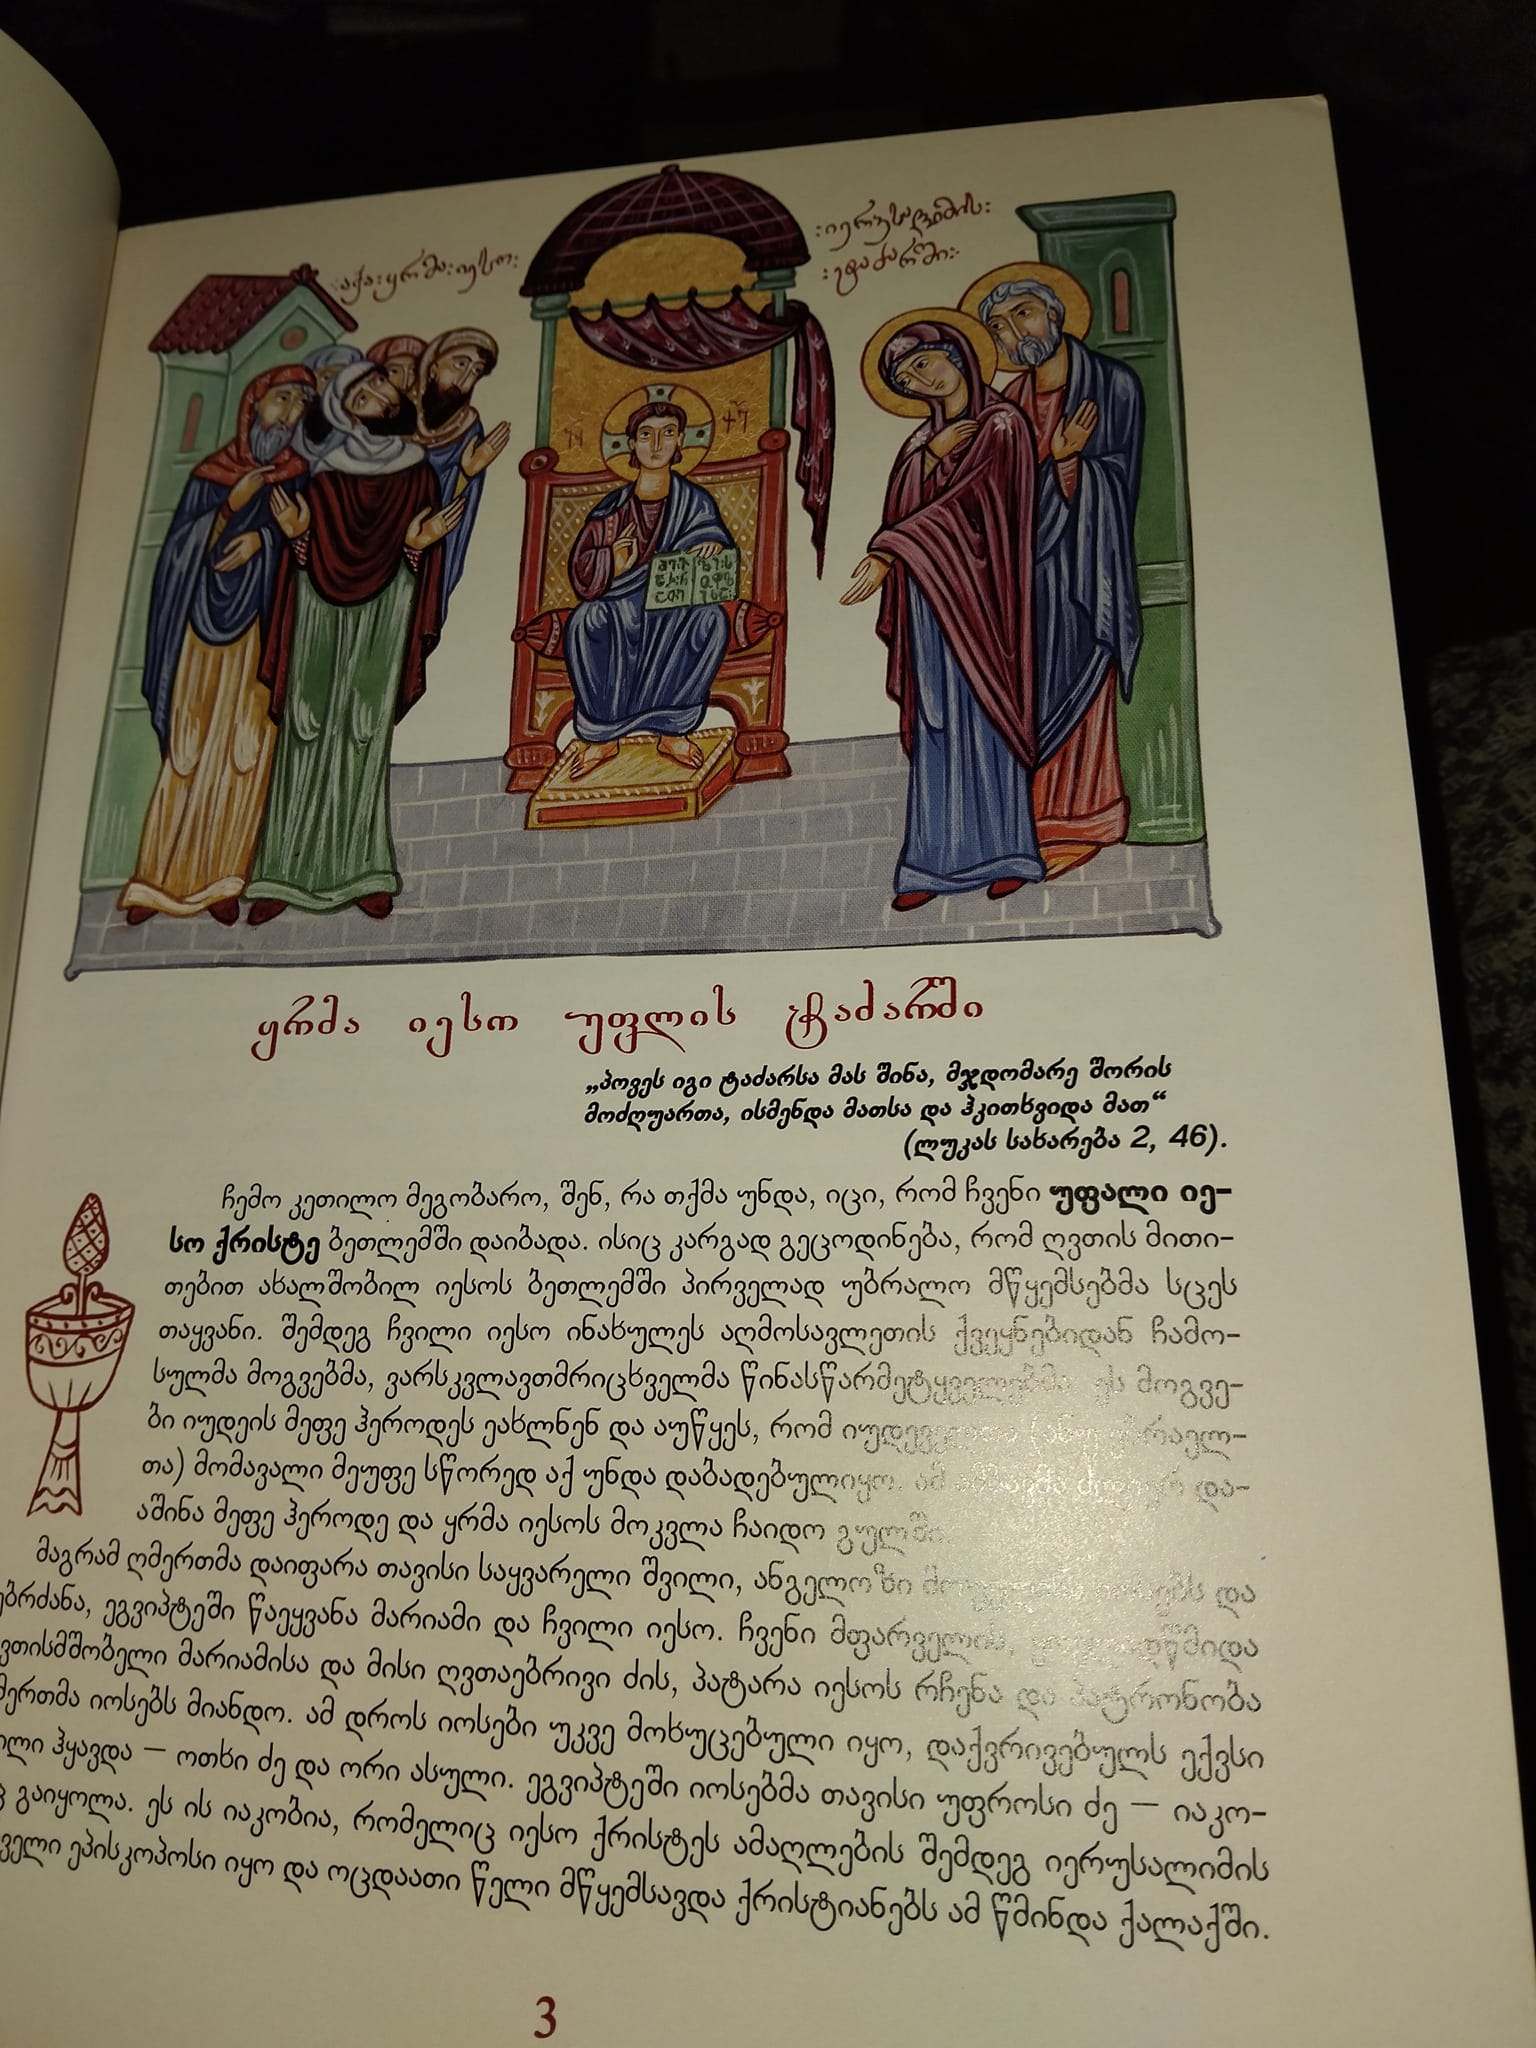 აქა : ყრმა : იესო :
: იერუსალიმის :
ტაძარში :
ყრმა იესო უფლის ტაძარში
„პოვეს იგი ტაძარსა მას შინა, მჯდომარე შორის
მოძღუართა, ისმენდა მათსა და ჰკითხვიდა მათ“
(ლუკას სახარება 2, 46).
ჩემო კეთილო მეგობარო, შენ, რა თქმა უნდა, იცი, რომ ჩვენი უფალი იე-
სო ქრისტე ბეთლემში დაიბადა. ისიც კარგად გეცოდინება, რომ ღვთის მითი-
თებით ახალშობილ იესოს ბეთლემში პირველად უბრალო მწყემსებმა სცეს
თაყვანი. შემდეგ ჩვილი იესო ინახულეს აღმოსავლეთის ქვეყნებიდან ჩამო-
სულმა მოგვებმა, ვარსკვლავთმრიცხველმა წინასწარმეტყველებმა. ეს მოგვე-
ბი იუდეის მეფე ჰეროდეს ეახლნენ და აუწყეს, რომ
თა) მომავალი მეუფე სწორედ აქ უნდა დაბადებულიყო. ამ და-
აშინა მეფე ჰეროდე და ყრმა იესოს მოკვლა ჩაიდო გულში.
მაგრამ ღმერთმა დაიფარა თავისი საყვარელი შვილი, ანგელოზი და
ეგვიპტეში წაეყვანა მარიამი და ჩვილი იესო. ჩვენი მფარველის,
მარიამისა და მისი ღვთაებრივი ძის, პატარა იესოს რჩენა და პატრონობა
იოსებს მიანდო. ამ დროს იოსები უკვე მოხუცებული იყო, დაქვრივებულს ექვსი
ჰყავდა — ოთხი ძე და ორი ასული. ეგვიპტეში იოსებმა თავისი უფროსი ძე — იაკო-
გაიყოლა. ეს ის იაკობია, რომელიც იესო ქრისტეს ამაღლების შემდეგ იერუსალიმის
ეპისკოპოსი იყო და ოცდაათი წელი მწყემსავდა ქრისტიანებს ამ წმინდა ქალაქში.
3